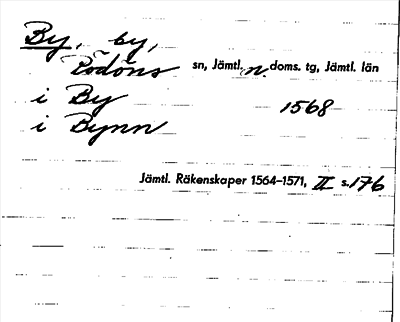 By, by,
Rödöns sn, Jämtl. n. doms. tg, Jämtl. län
i By 1568
i Bynn
Jämtl. Räkenskaper 1564–1571, II s. 176